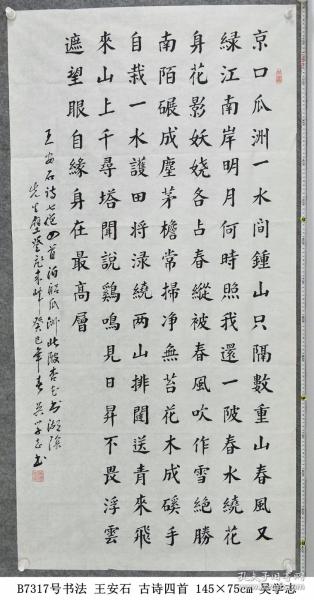 京口瓜洲一水间鍾山只隔數重山春風又
緑江南岸明月何時照我還一陂春水繞花
身花影妖娆各占春縱被春風吹作雪絶勝
南陌碾成塵茅檐常掃净無苔花木成磎手
自栽一水護田将渌繞两山排闥送青來飛
來山上千尋塔聞說鷄鳴見日昇不畏浮雲
遮望眼自緣身在最高層
王安石诗七绝四首泊船瓜洲北陂杏花书湖陰
先生壁登飛来峰 癸巳年春 吴学志书
B7317号书法 王安石 古诗四首 145×75cm 吴学志